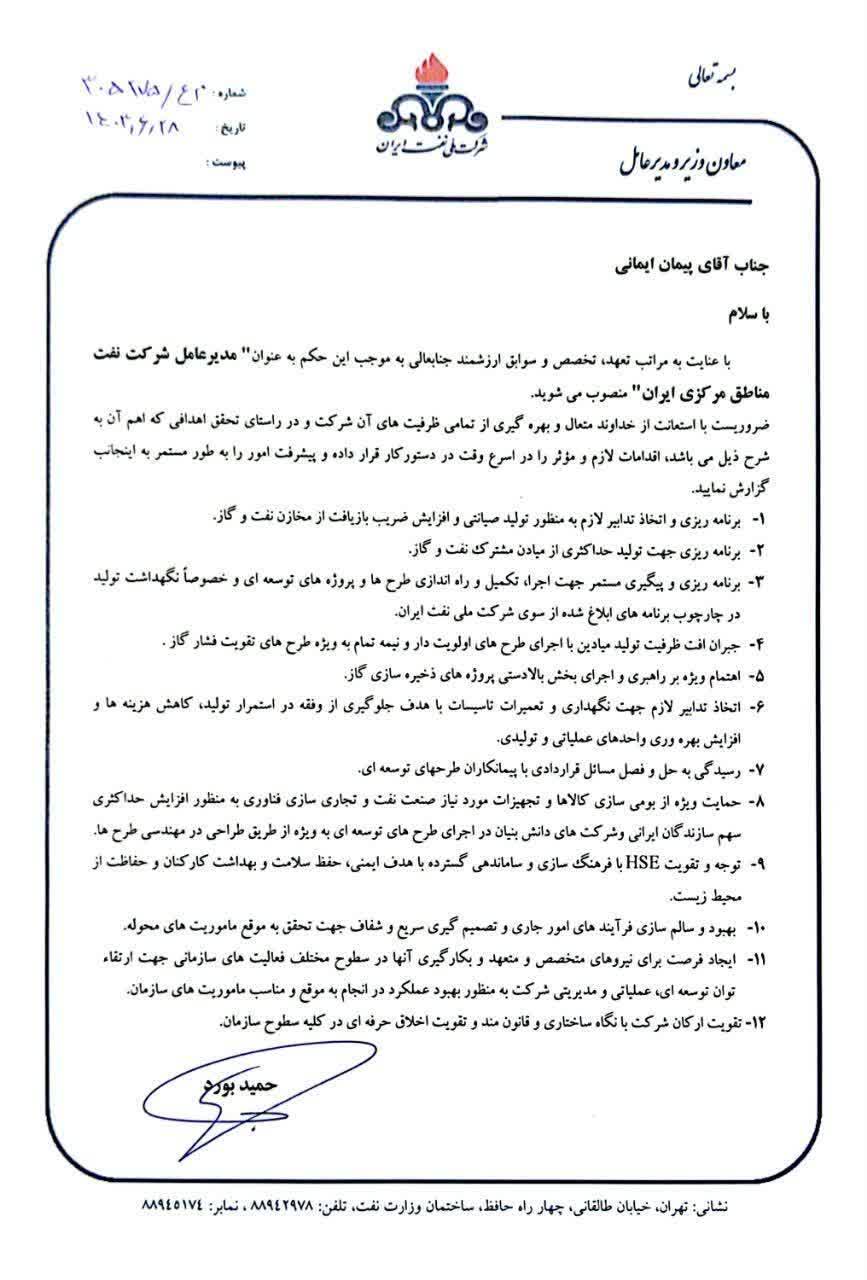 بسمه تعالی
معاون وزیر و مدیرعامل
شرکت ملی نفت ایران
شماره:
تاریخ: ۱۴۰۳,۶,۲۸
پیوست:
جناب آقای پیمان ایمانی
با سلام
با عنایت به مراتب تعهد، تخصص و سوابق ارزشمند جنابعالی به موجب این حکم به عنوان" مدیرعامل شرکت نفت
مناطق مرکزی ایران" منصوب می شوید.
ضروریست با استعانت از خداوند متعال و بهره گیری از تمامی ظرفیت های آن شرکت و در راستای تحقق اهدافی که اهم آن به
شرح ذیل می باشد، اقدامات لازم و مؤثر را در اسرع وقت در دستورکار قرار داده و پیشرفت امور را به طور مستمر به اینجانب
گزارش نمایید.
۱- برنامه ریزی و اتخاذ تدابیر لازم به منظور تولید صیانتی و افزایش ضریب بازیافت از مخازن نفت و گاز.
۲- برنامه ریزی جهت تولید حداکثری از میادن مشترک نفت و گاز.
۳- برنامه ریزی و پیگیری مستمر جهت اجرا، تکمیل و راه اندازی طرح ها و پروژه های توسعه ای و خصوصاً نگهداشت تولید
در چارچوب برنامه های ابلاغ شده از سوی شرکت ملی نفت ایران.
۴- جبران افت ظرفیت تولید میادین با اجرای طرح های اولویت دار و نیمه تمام به ویژه طرح های تقویت فشار گاز .
۵- اهتمام ویژه بر راهبری و اجرای بخش بالادستی پروژه های ذخیره سازی گاز.
۶- اتخاذ تدابیر لازم جهت نگهداری و تعمیرات تاسیسات با هدف جلوگیری از وقفه در استمرار تولید، کاهش هزینه ها و
افزایش بهره وری واحدهای عملیاتی و تولیدی.
۷- رسیدگی به حل و فصل مسائل قراردادی با پیمانکاران طرحهای توسعه ای.
۸- حمایت ویژه از بومی سازی کالاها و تجهیزات مورد نیاز صنعت نفت و تجاری سازی فناوری به منظور افزایش حداکثری
سهم سازندگان ایرانی وشرکت های دانش بنیان در اجرای طرح های توسعه ای به ویژه از طریق طراحی در مهندسی طرح ها.
۹- توجه و تقویت HSE با فرهنگ سازی و ساماندهی گسترده با هدف ایمنی، حفظ سلامت و بهداشت کارکنان و حفاظت از
محیط زیست.
۱۰- بهبود و سالم سازی فرآیند های امور جاری و تصمیم گیری سریع و شفاف جهت تحقق به موقع ماموریت های محوله.
۱۱- ایجاد فرصت برای نیروهای متخصص و متعهد و بکارگیری آنها در سطوح مختلف فعالیت های سازمانی جهت ارتقاء
توان توسعه ای، عملیاتی و مدیریتی شرکت به منظور بهبود عملکرد در انجام به موقع و مناسب ماموریت های سازمان.
۱۲- تقویت ارکان شرکت با نگاه ساختاری و قانون مند و تقویت اخلاق حرفه ای در کلیه سطوح سازمان.
حمید بورد
نشانی: تهران، خیابان طالقانی، چهار راه حافظ، ساختمان وزارت نفت، تلفن: ۸۸۹٤۲۹۷۸ ، نمابر: ۸۸۹٤٥۱۷٤